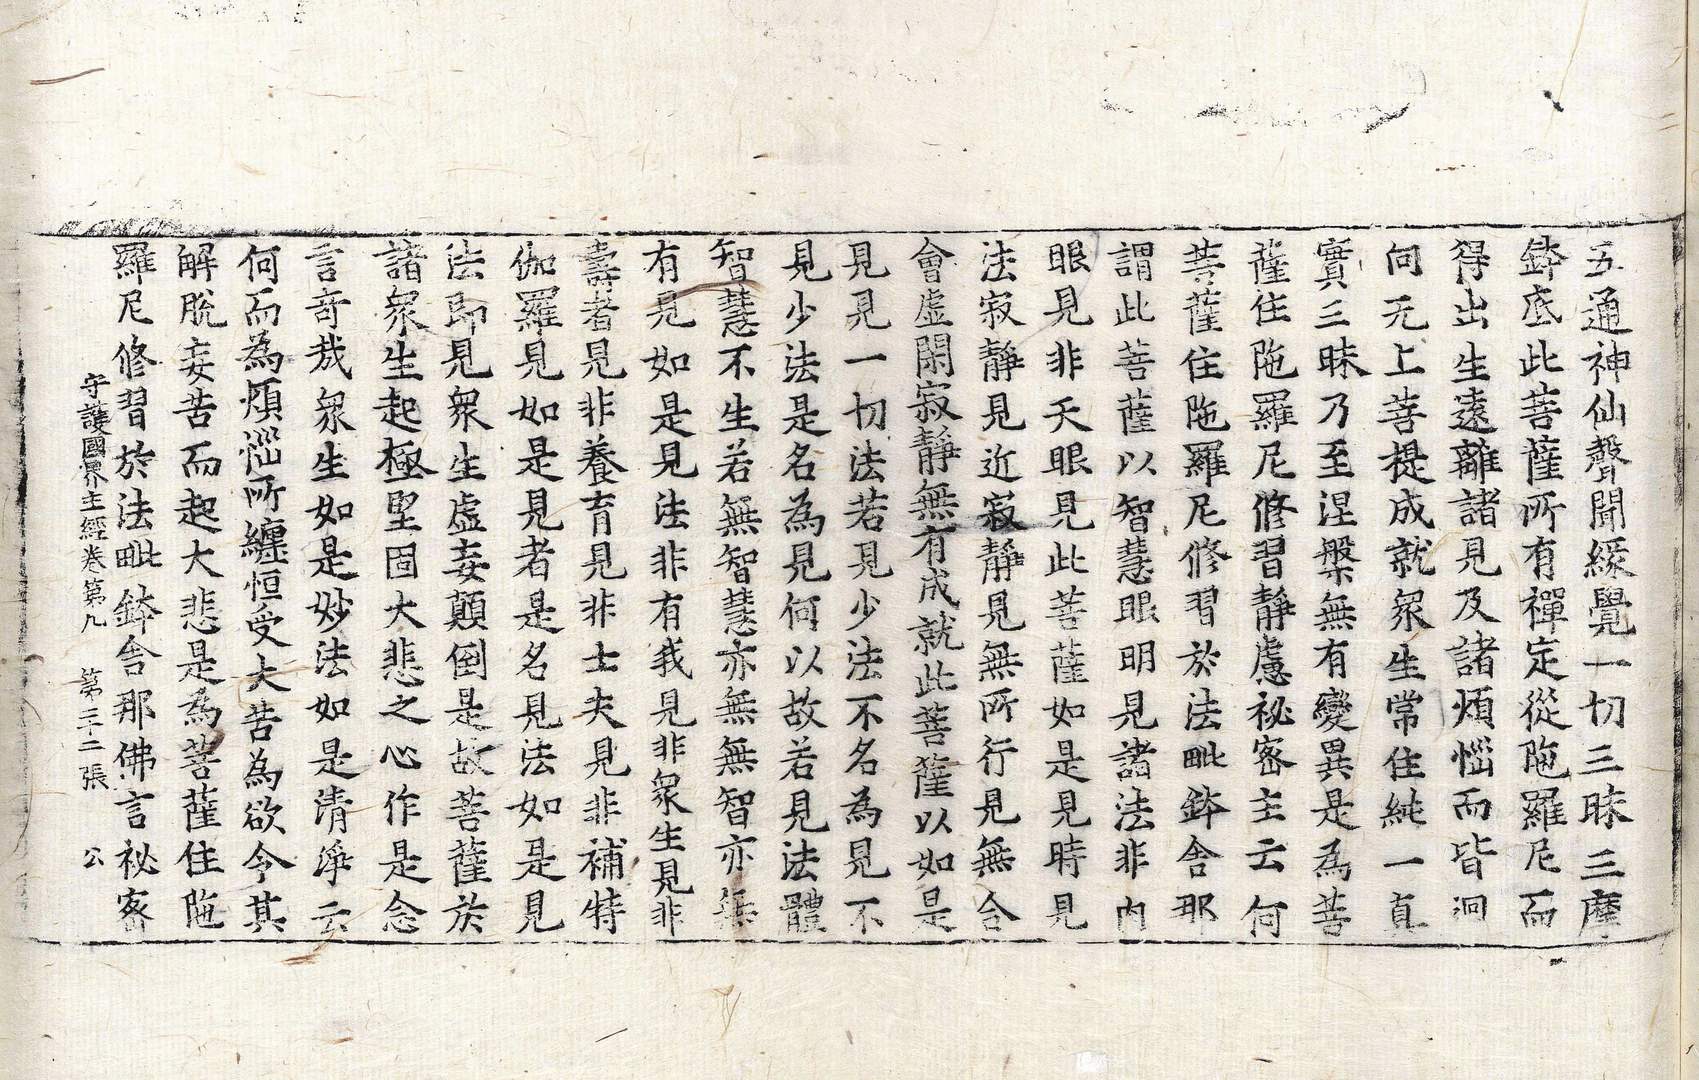 五通神仙聲聞緣覺一切三昧三摩
鉢底此菩薩所有禪定從陁羅尼而
得出生遠離諸見及諸煩惱而皆迴
向无上菩提成就衆生常住純一真
實三昧乃至涅槃無有變異是為菩
薩住陁羅尼修習靜慮祕密主云何
菩薩住陁羅尼修習於法毗鉢舍那
謂此菩薩以智慧眼明見諸法非内
眼見非天眼見此菩薩如是見時見
法寂靜見近寂靜見無所行見無合
會虛閑寂靜無有成就此菩薩以如是
見見一切法若見少法不名為見不
見少法是名為見何以故若見法體
智慧不生若無智慧亦無無智亦無
有見如是見法非有我見非衆生見非
壽者見非養育見非士夫見非補特
伽羅見如是見者是名見法如是見
法即見衆生虛妄顛倒是故菩薩於
諸衆生起極堅固大悲之心作是念
言奇哉衆生如是妙法如是清淨云
何而為煩惱所纏恒受大苦為欲令其
解脫妄苦而起大悲是為菩薩住陁
羅尼修習於法毗鉢舍那佛言祕密
守護國界主經卷第九　第二十二張　公